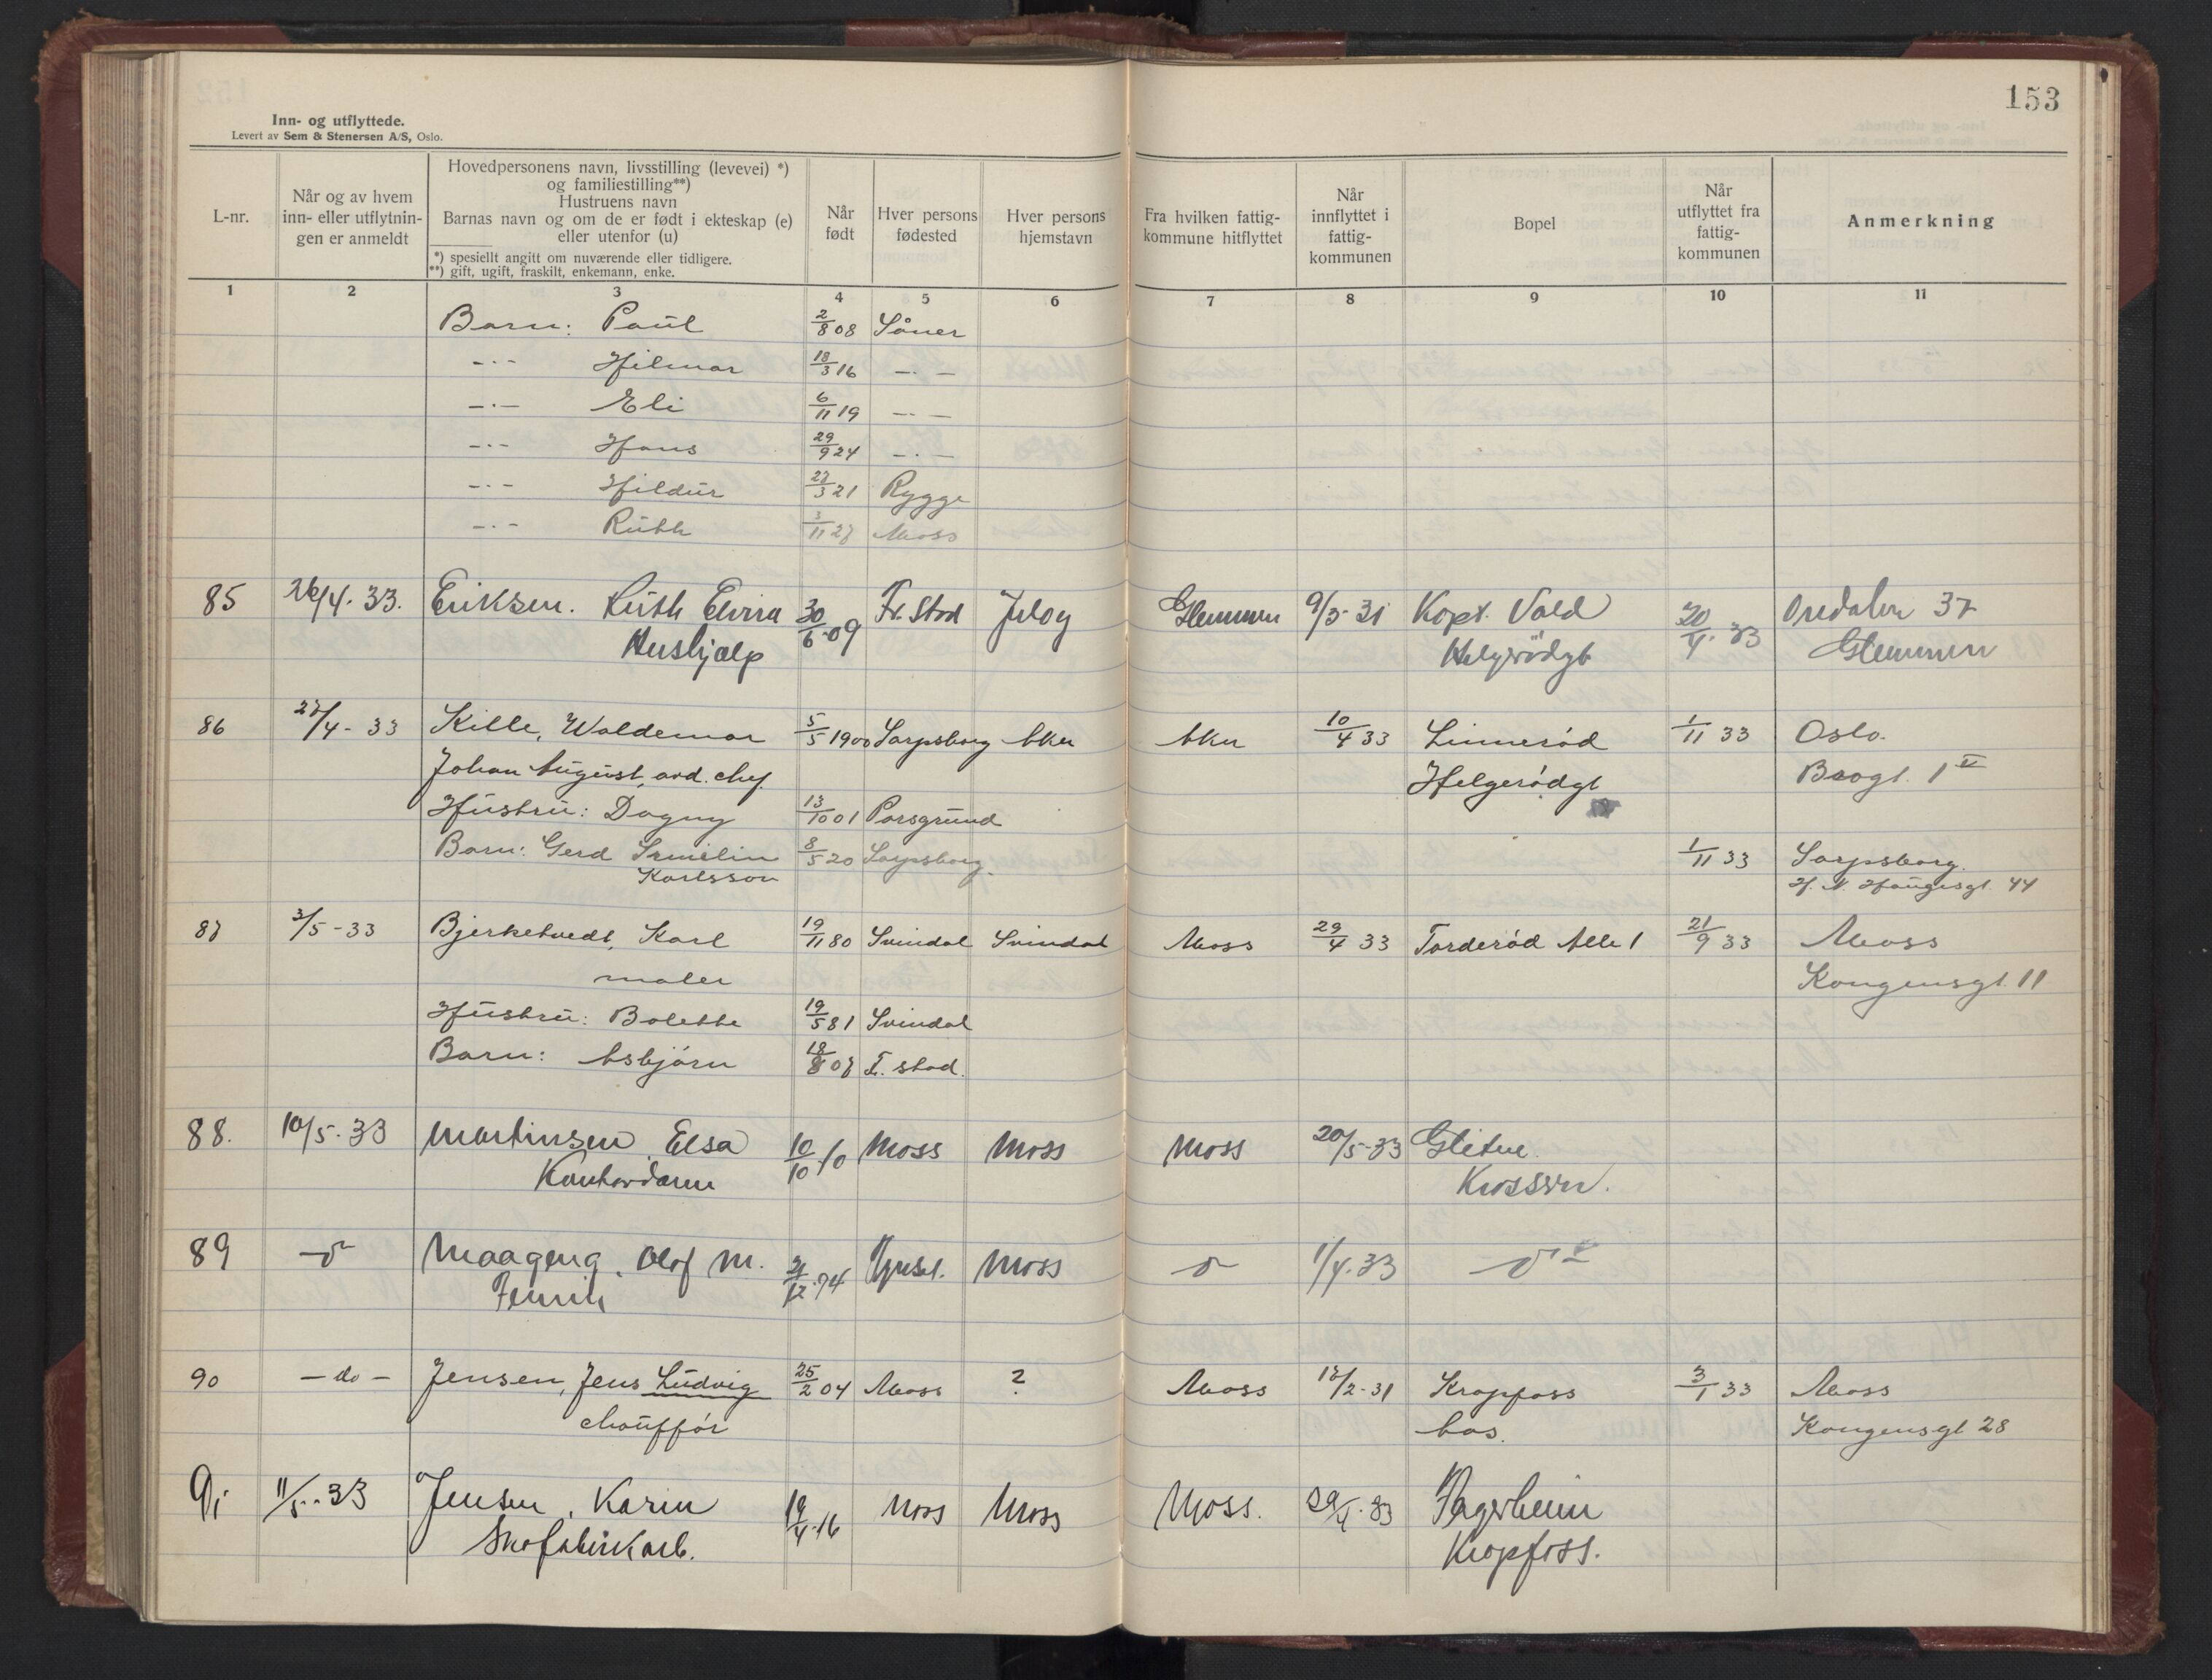 153
Inn- og utflyttede.
Levert av Sem & Stenersen A/S, Oslo.
L-nr.
Når og av hvem
inn- eller utflytnin-
gen er anmeldt
Hovedpersonens navn, livsstilling (levevei) *)
og familiestilling**)
Hustruens navn
Barnas navn og om de er født i ekteskap (e)
eller utenfor (u)
*) spesielt angitt om nuværende eller tidligere.
**) gift, ugift, fraskilt, enkemann, enke.
Når
født
Hver persons
fødested
Hver persons
hjemstavn
Fra hvilken fattig-
kommune hitflyttet
Når
innflyttet i
fattig-
kommunen
Bopel
Når
utflyttet fra
fattig-
kommunen
Anmerkning
1 2 3 4 5 6 7 8 9 10 11
Barn: Paul 2/8 08 Såner
-"- Hilmar 18/3 16 -"-
-"- Eli 6/11 19 -"-
-"- Hans 29/9 24 -"-
-"- Hildur 22/3 21 Rygge
-"- Ruth 3/11 27 Moss
85 26/4. 33. Eriksen. Ruth Elvira 30/6-09 Fr.stad Jeløy Glemmen 9/3-31 Kapt. Vold 20/4. 33 Oredalen 37
Hushjælp Helgerødgt Glemmen
86 27/4-33 Kille, Waldemar 5/5 1900 Sarpsborg Aker Aker 10/4 33 Linnerød 1/11 33 Oslo.
Johan August, avd. chef. Helgerødgt Brogt. 1 V
Hustru: Dagny 13/10 01 Porsgrund
Barn: Gerd Irmelin 8/5 20 Sarpsborg. 1/11 33 Sarpsborg.
Karlsson H. N. Haugesgt. 44
87 3/5-33 Bjerketvedt, Karl 19/11 80 Svindal Svindal Moss 29/4 33 Torderød Alle 1 21/9 33 Moss
maler Kongensgt. 11
Hustru: Bolette 19/5 81 Svindal
Barn: Asbjørn 18/8 07 F. stad.
88. 10/5-33 Martinsen, Elsa 10/10-10 Moss Moss Moss 20/5-33 Glitne
Kontordame Krossern.
89 -d- Maageng, Olof M. 21/12-94 Moss d 1/4-33 -d-
Fenrik
90 -do- Jensen, Jens Ludvig 25/2 04 Moss ? Moss 17/2-31 Kropfoss 3/1 33 Moss
chauffør has. Kongensgt 28
91 11/5.-33 Jensen, Karin 19/4-16 Moss Moss Moss. 29/4-33 Fagerheim
Skofabrikarb. Kropfoss.